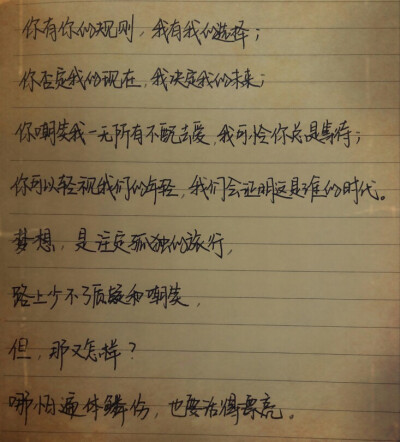 你有你的规则，我有我的选择；
你否定我的现在，我决定我的未来；
你嘲笑我一无所有不配去爱，我可怜你总是等待；
你可以轻视我们的年轻，我们会证明这是谁的时代。
梦想，是注定孤独的旅行，
路上少不了质疑和嘲笑，
但，那又怎样？
哪怕遍体鳞伤，也要活得漂亮。